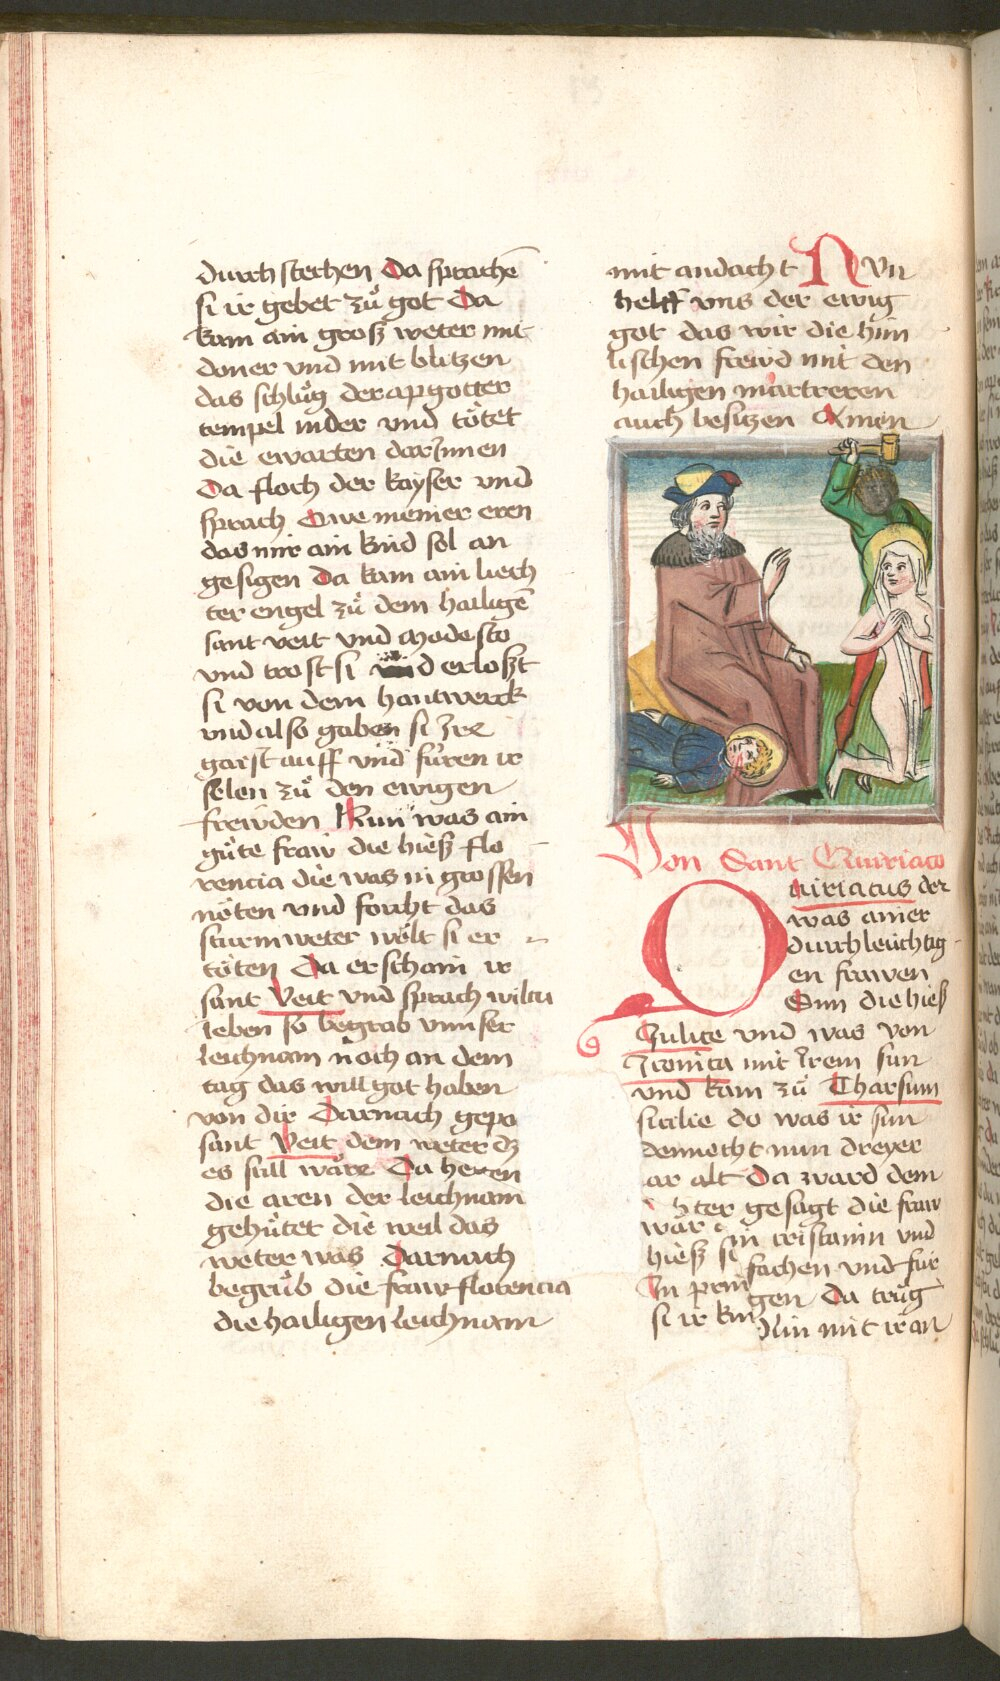 durch stechen Da sprachē
si ir gebet zů got Da
kam ain grosz weter mit
doner vnd mit blitzen
das schlůg der apgotter
tempel nider vnd tötet
die ewarten darJnnen
Da floch der kayser vnd
sprach Owe meiner eren
das mir ain kind sol an
gesigen Da kam ain liech
ter engel zů dem hailigē
sant veit vnd Modesto
vnd trost si vnd erloszt
si von dem hantwerck
vnd also gaben si Jre
gaist auff vnd fůren ir
selen zů den ewigen
frewden Nun was ain
gůte fraw die hiesz flo
rencia die was in grossen
nöten vnd forcht das
sturmweter wölt si er
töten Da erschain ir
sant Veit vnd sprach wiltu
leben so begrab vnnser
leichnam noch an dem
tag das will got haben
von dir Darnach gepo
sant Veit dem weter dz
es still wäre Da heten
die aren der leichnam
gehůtet die weil das
weter was Darnach
begrůb die fraw florencia
die hailigen leichnam
mit andacht Nvn
helff vns der ewig
got das wir die him
lischen frewd mit den
hailigen martreren
auch besitzen Amen
Von Sant Quiriaco
Quiriacus der
was ainer
durchleuchtig
en frawen
Sun die hiesz
Julite vnd was von
Jconica mit Jrem sun
vnd kam zů Tharsum
sicilie do was ir sun
dennocht nun dreyer
iar alt Da ward dem
ter gesagt die fraw
wär in cristanin vnd
hiesz si fachen vnd für
In prin gen Da trůg
si ir kin dlin mit ir an